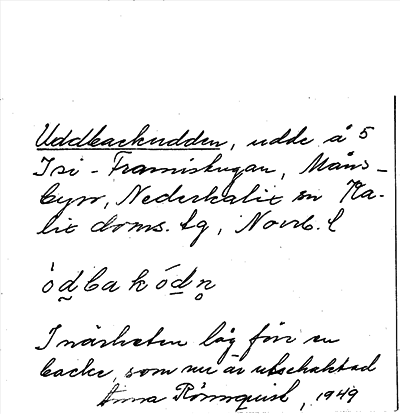 Uddbackudden, udde å 5
Isi-Framistugan, Måns-
byn, Nederkalix sn Ka-
lix doms. tg, Norrb. l
òd̰bakód̰n̥
I närheten låg förr en
backe, som nu är utschaktad
Anna Rönnquist, 1949